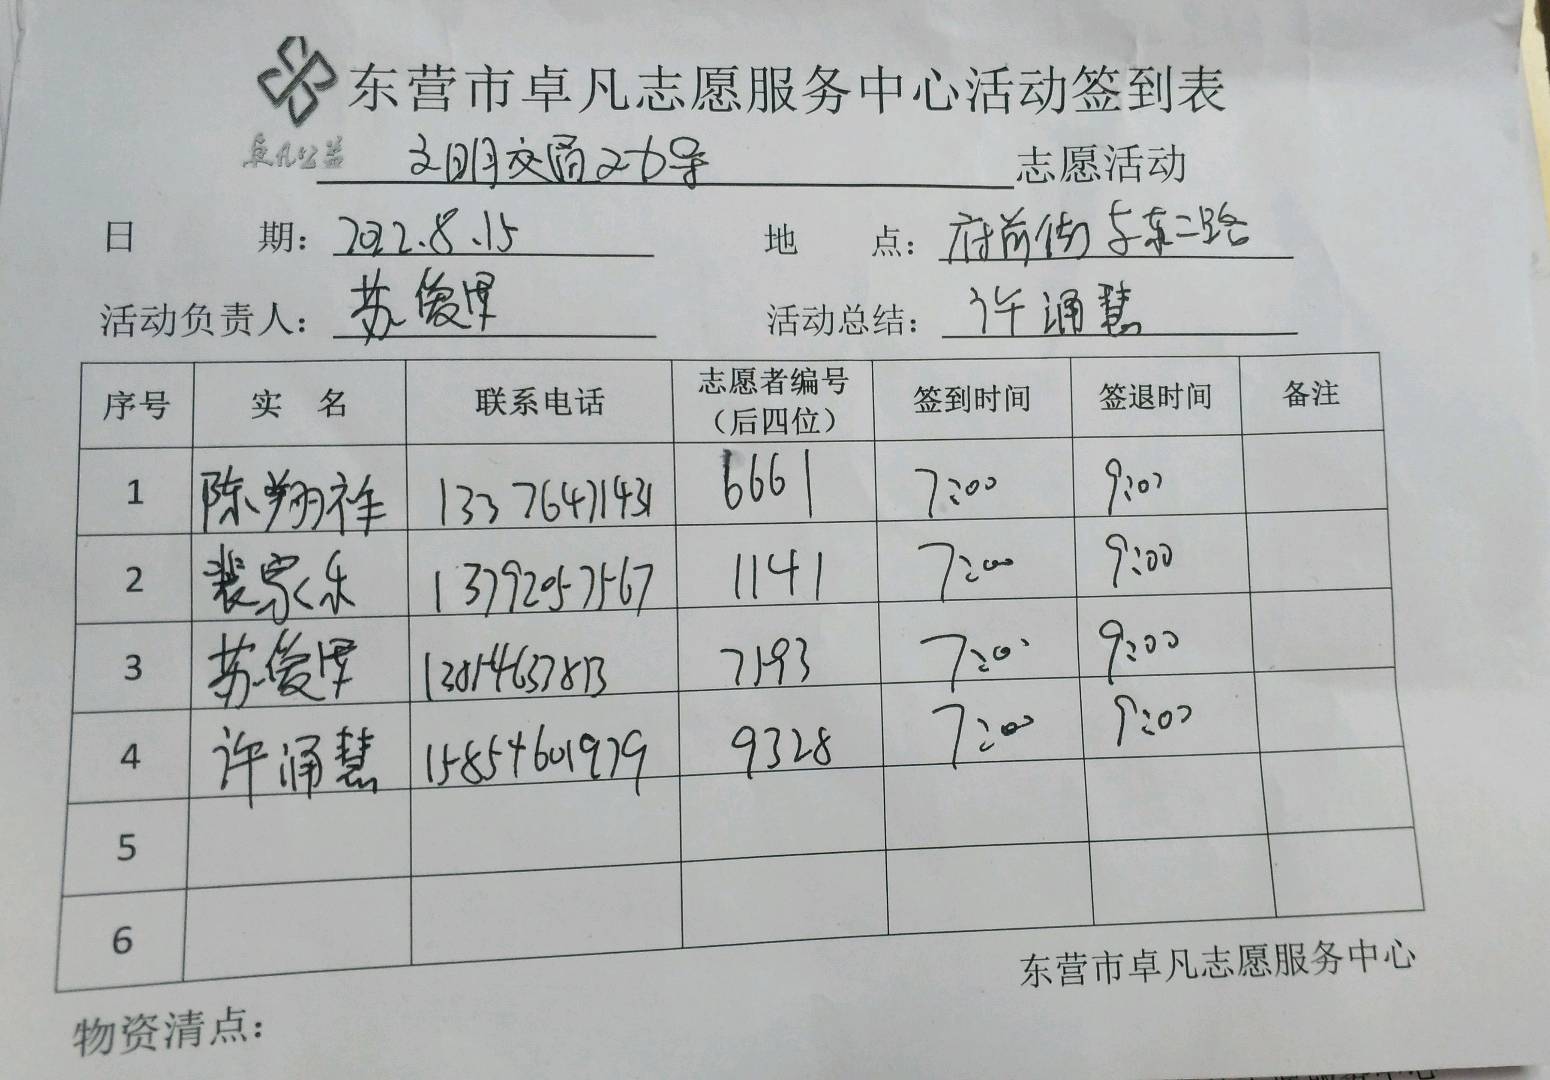 东营市卓凡志愿服务中心活动签到表
卓凡公益
文明交通26号 志愿活动
日 期：2022.8.15 地 点：府前街与东二路
活动负责人：苏俊津 活动总结：许涌慧
序号 实 名 联系电话 志愿者编号（后四位） 签到时间 签退时间 备注
1 陈翔祥 13376471431 6661 7:00 9:00
2 裴家乐 13792057567 1141 7:00 9:00
3 苏俊津 7193 7:00 9:00
4 许涌慧 15854601979 9328 7:00 9:00
5
6
东营市卓凡志愿服务中心
物资清点：